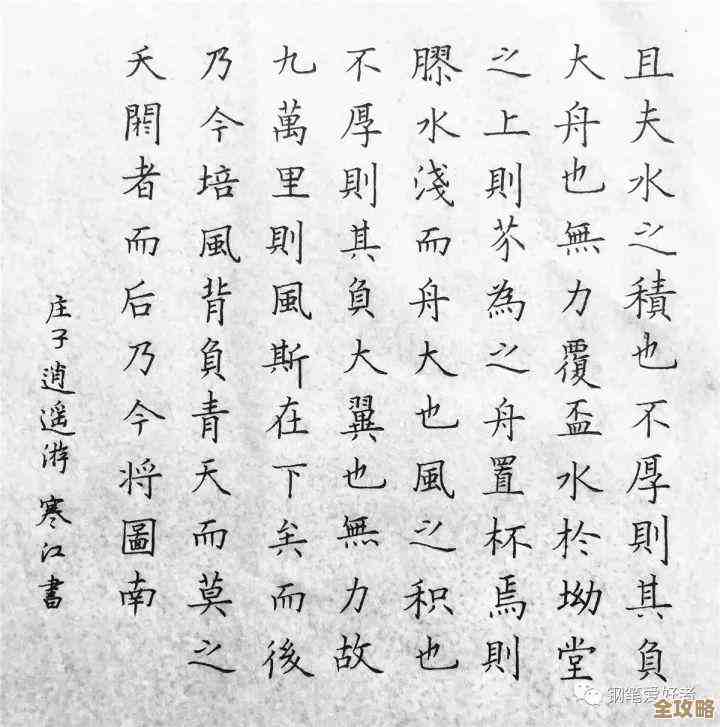 且夫水之積也不厚則其負
大舟也無力覆盃水於坳堂
之上則芥為之舟置杯焉則
膠水淺而舟大也風之积也
不厚則其負大翼也無力故
九萬里則風斯在下矣而後
乃今培風背負青天而莫之
夭閼者而后乃今将圖南
庄子逍遥游 寒江書
钢笔爱好者
全攻略